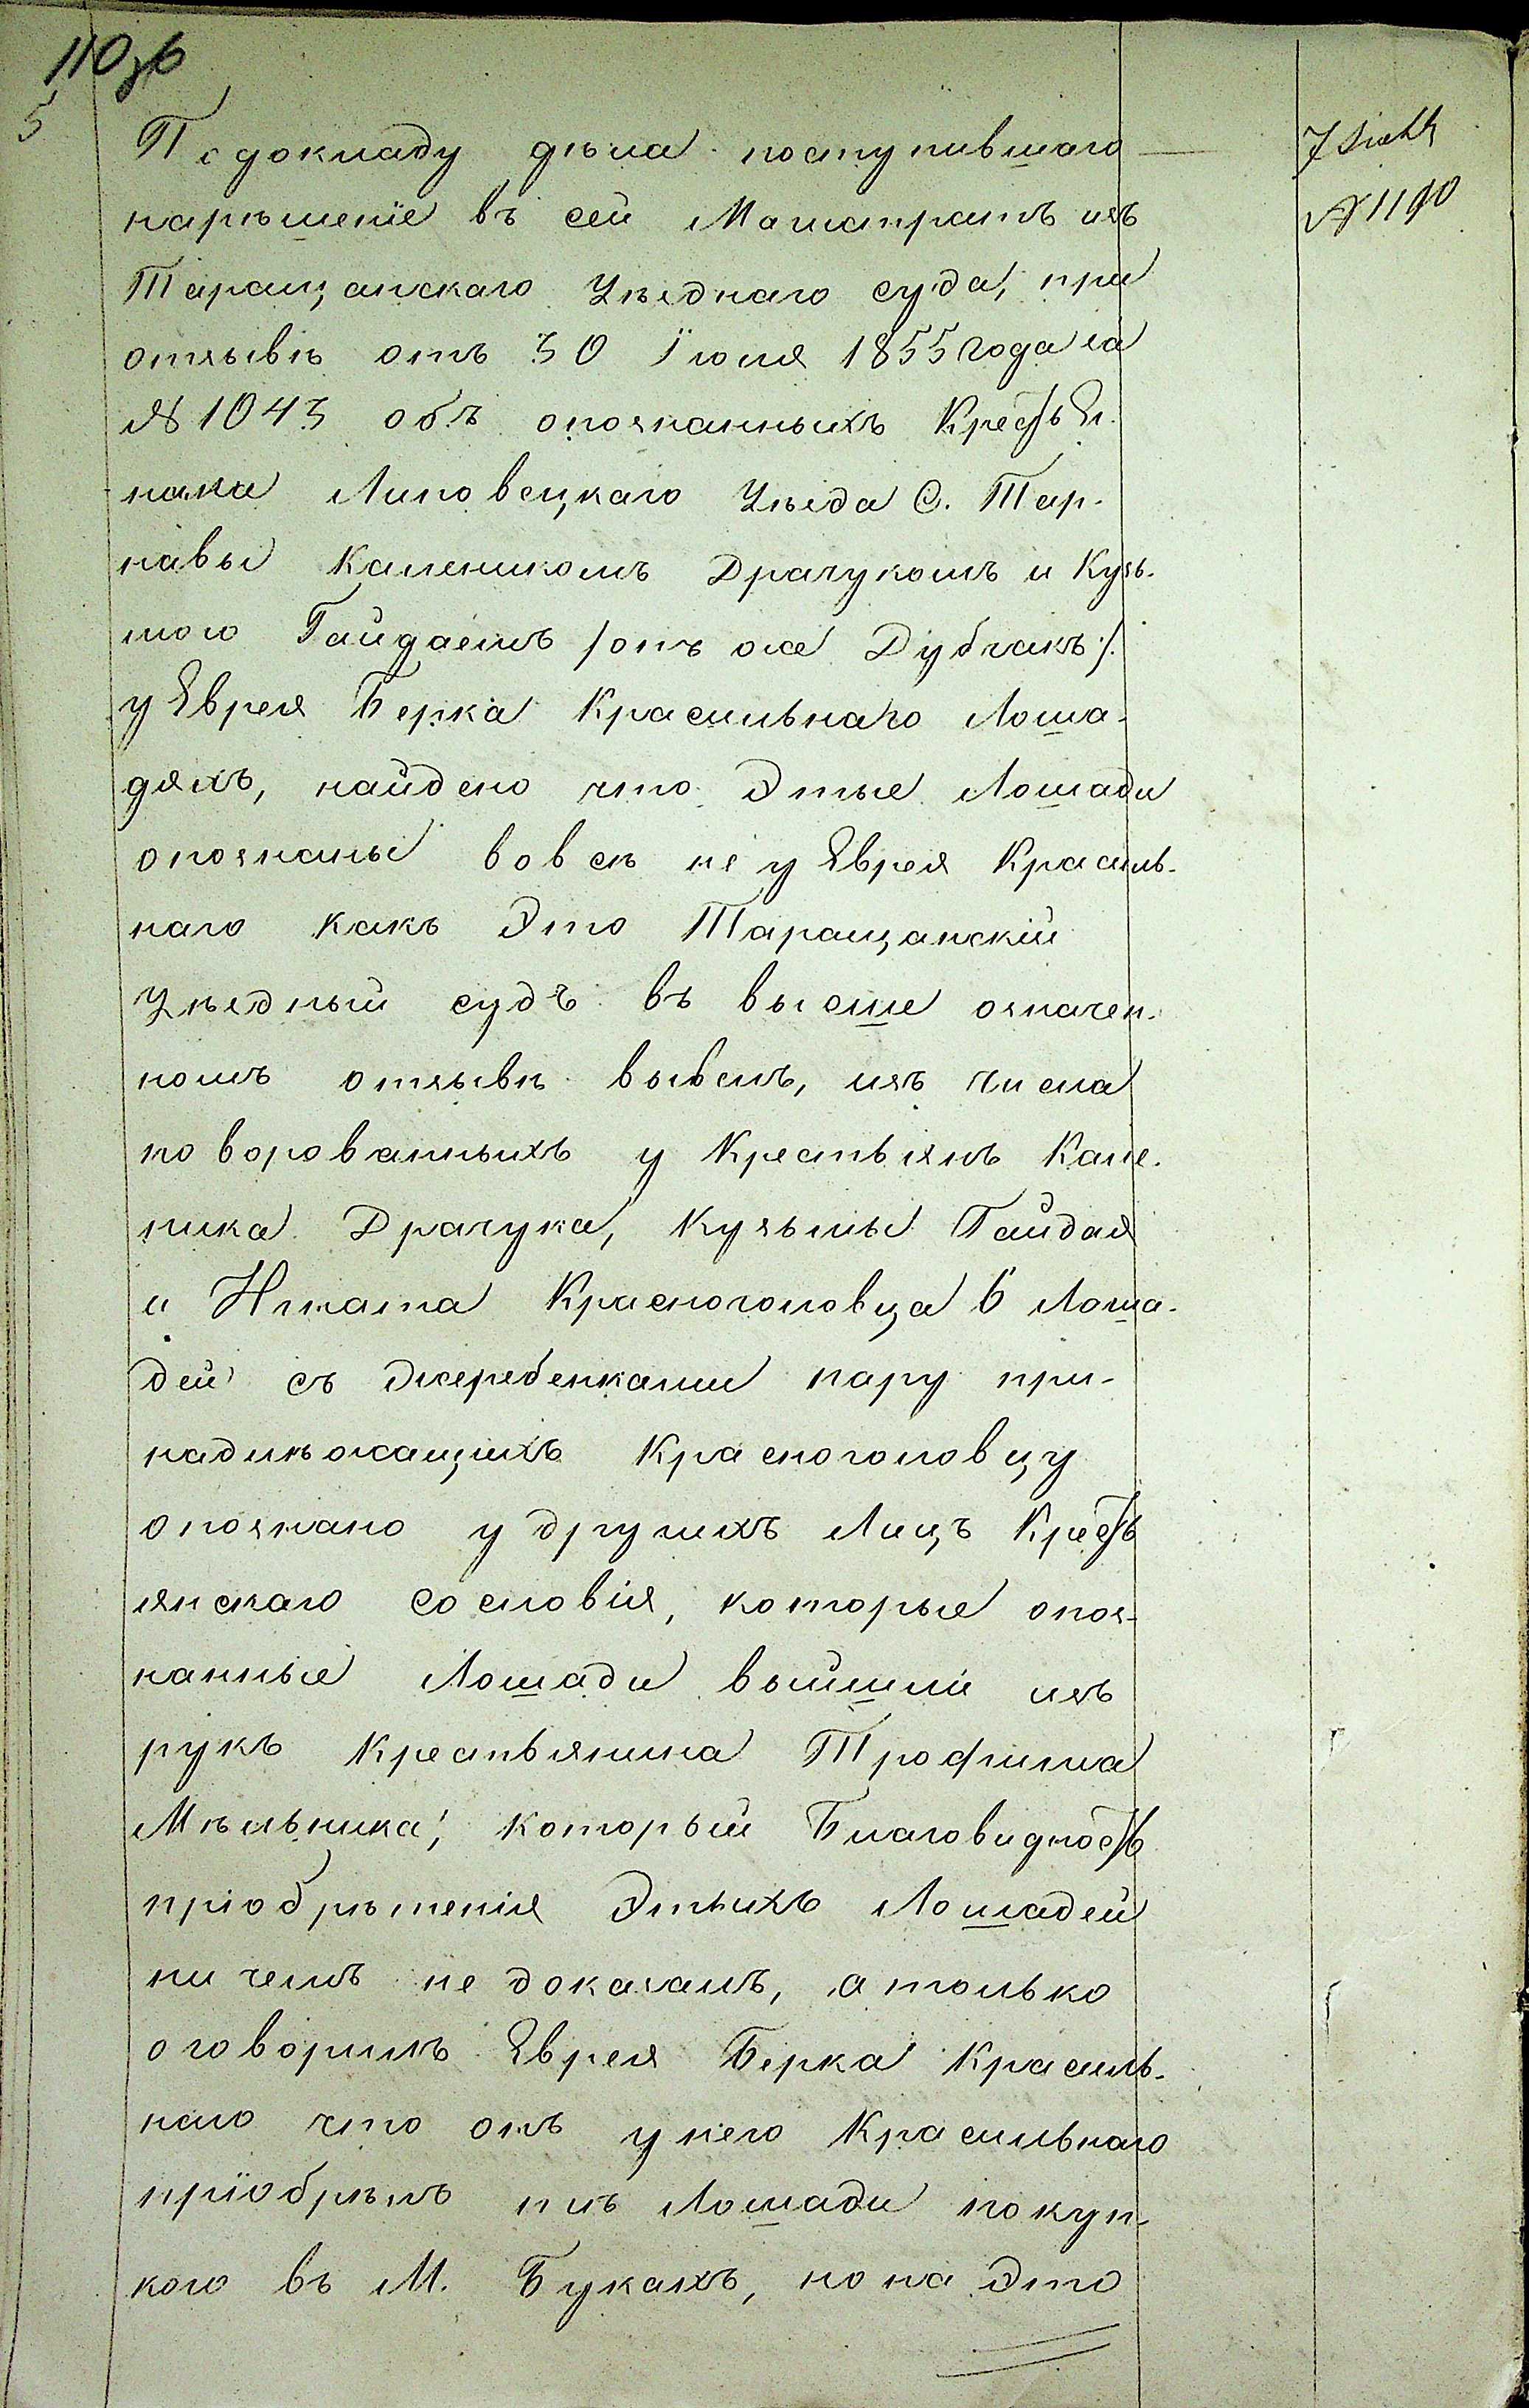 110зв
5
По докладу дѣла поступившаго
нарѣшеніе въ сей Магистратъ изъ
Таращанскаго Уѣзднаго суда, при
отзывѣ отъ 30 Іюля 1855 года за
№ 1043 объ опознанныхъ Крестья-
нами Липовецкаго Уѣзда С. Тар-
навы Калеником Драчукомъ и Кузь-
мою Гайдаемъ /онъ же Дубчакъ/.
у Еврея Берка Красильнаго Лоша-
дяхъ, найдено что Этые Лошади
опознаны вовсѣ не у Еврея Красиль-
наго какъ Это Таращанскій
Уѣздный судъ въ выше означен-
номъ отзывѣ вывелъ, изъ числа
поворованныхъ у Крестьянъ Кале-
ника Драчука, Кузьмы Гайдая
и Игната Красноголовца 6 Лоша-
дей съ Жеребенками пару при-
надлѣжащихъ Красноголовцу
опознано у другихъ Лицъ Кресть
янскаго сословія, которые опоз-
нанные Лошади выйшли изъ
рукъ Крестьянина Трофима
Мѣльника, который Благовидность
пріобрѣтенія Этыхъ Лошадей
ни чемъ не доказалъ, а только
оговорилъ Еврея Берка Красиль-
наго что онъ у него Красильнаго
пріобрѣлъ тѣ Лошади покуп-
кою въ М. Букахъ, но на Это
№ 1190